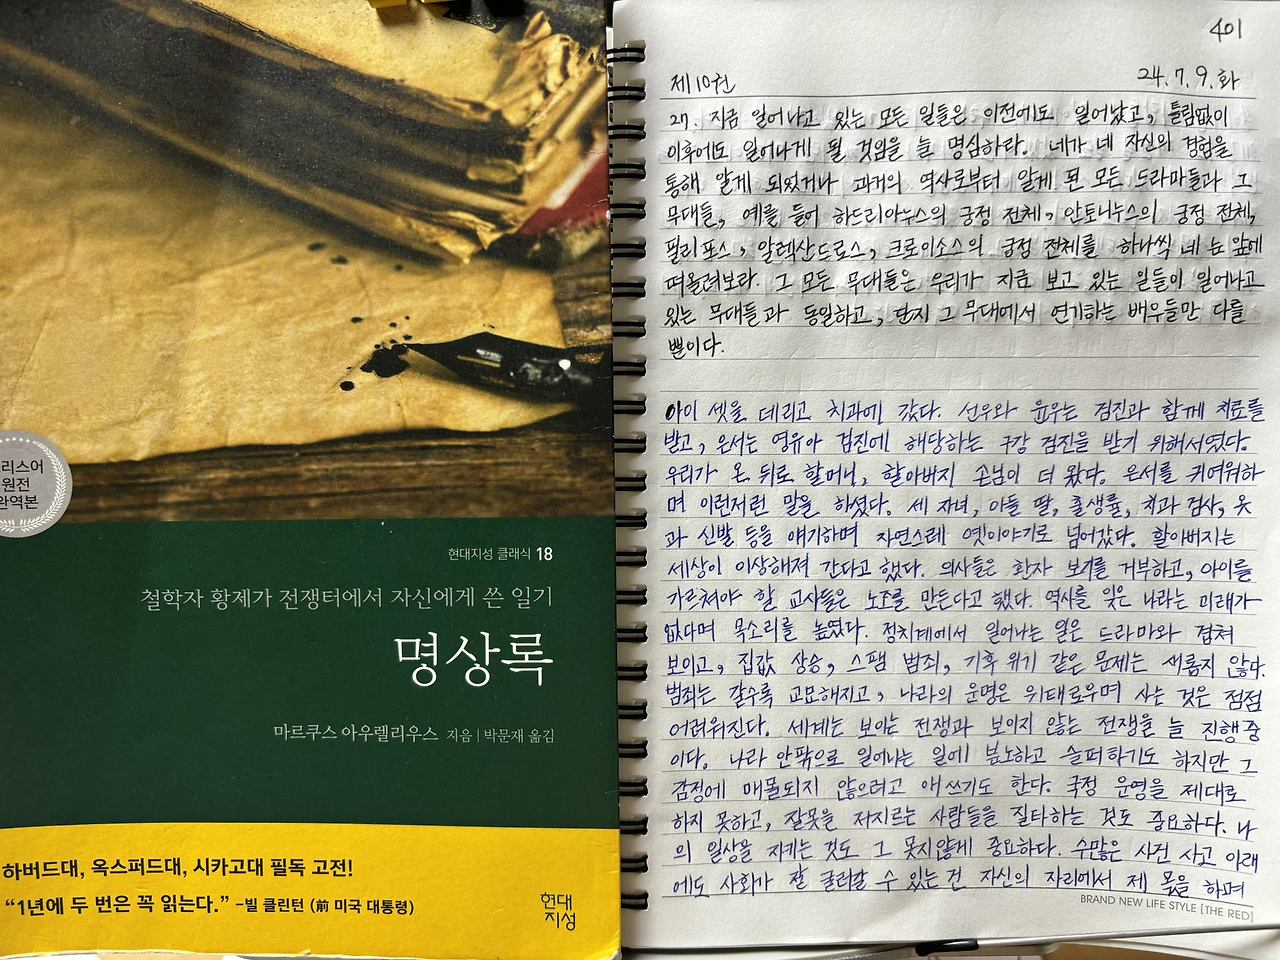 리스어
원전
완역본
현대지성 클래식 18
철학자 황제가 전쟁터에서 자신에게 쓴 일기
명상록
마르쿠스 아우렐리우스 지음 | 박문재 옮김
하버드대, 옥스퍼드대, 시카고대 필독 고전!
“1년에 두 번은 꼭 읽는다.” -빌 클린턴 (前 미국 대통령)
현대
지성
401
제10권
24.7.9.화
27. 지금 일어나고 있는 모든 일들은 이전에도 일어났고, 틀림없이
이후에도 일어나게 될 것임을 늘 명심하라. 네가 네 자신의 경험을
통해 알게 되었거나 과거의 역사로부터 알게 된 모든 드라마들과 그
무대들, 예를 들어 하드리아누스의 궁정 전체, 안토니누스의 궁정 전체,
필리포스, 알렉산드로스, 크로이소스의 궁정 전체를 하나씩 네 눈 앞에
떠올려보라. 그 모든 무대들은 우리가 지금 보고 있는 일들이 일어나고
있는 무대들과 동일하고, 단지 그 무대에서 연기하는 배우들만 다를
뿐이다.
아이 셋을 데리고 치과에 갔다. 선우와 윤우는 검진과 함께 치료를
받고, 은서는 영유아 검진에 해당하는 구강 검진을 받기 위해서였다.
우리가 온 뒤로 할머니, 할아버지 손님이 더 왔다. 은서를 귀여워하
며 이런저런 말을 하셨다. 세 자녀, 아들 딸, 출생률, 치과 검사, 옷
과 신발 등을 얘기하며 자연스레 옛이야기로 넘어갔다. 할아버지는
세상이 이상해져 간다고 했다. 의사들은 환자 보기를 거부하고, 아이를
가르쳐야 할 교사들은 노조를 만든다고 했다. 역사를 잊은 나라는 미래가
없다며 목소리를 높였다. 정치계에서 일어나는 일은 드라마와 겹쳐
보이고, 집값 상승, 스팸 범죄, 기후 위기 같은 문제는 새롭지 않다.
범죄는 갈수록 교묘해지고, 나라의 운명은 위태로우며 사는 것은 점점
어려워진다. 세계는 보이는 전쟁과 보이지 않는 전쟁을 늘 진행 중
이다. 나라 안팎으로 일어나는 일에 분노하고 슬퍼하기도 하지만 그
감정에 매몰되지 않으려고 애쓰기도 한다. 국정 운영을 제대로
하지 못하고, 잘못을 저지르는 사람들을 질타하는 것도 중요하다. 나
의 일상을 지키는 것도 그 못지않게 중요하다. 수많은 사건 사고 아래
에도 사회가 잘 굴러갈 수 있는 건 자신의 자리에서 제 몫을 하며
BRAND NEW LIFE STYLE [THE RED]